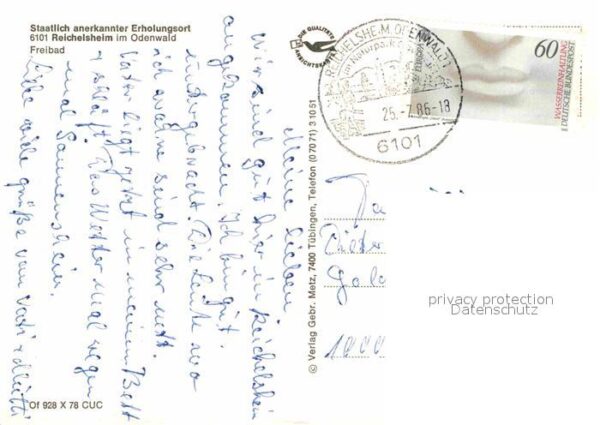 Staatlich anerkannter Erholungsort
6101 Reichelsheim im Odenwald
Freibad
Meine Lieben
Wir sind gut hier in Reichelsheim
angekommen. Ich bin gut
untergebracht. Die Leute wo
ich wohne sind sehr nett.
Vater liegt jetzt in meinem Bett
+ schläft. Das Wetter mal Regen
mal Sonnenschein.
Liebe viele grüße von Vati +
Of 928 X 78 CUC
© Verlag Gebr. Metz, 7400 Tübingen, Telefon (07071) 31051
DIE QUALITÄTS
ANSICHTSKARTE
REICHELSHEIM, ODENWALD 1
im Naturpark
25.-7.86-18
6101
60
WASSERREINHALTUNG
DEUTSCHE BUNDESPOST
Dieter
1000
privacy protection
Datenschutz